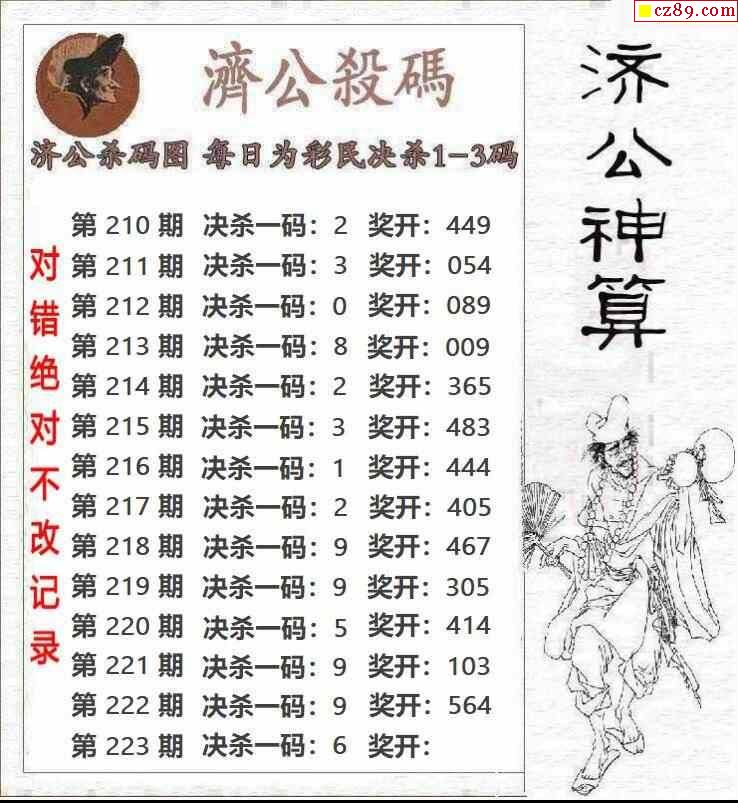 cz89.com
濟公殺碼
济公杀码图 每日为彩民决杀1-3码
第 210 期 决杀一码：2 奖开：449
第 211 期 决杀一码：3 奖开：054
第 212 期 决杀一码：0 奖开：089
第 213 期 决杀一码：8 奖开：009
第 214 期 决杀一码：2 奖开：365
第 215 期 决杀一码：3 奖开：483
第 216 期 决杀一码：1 奖开：444
第 217 期 决杀一码：2 奖开：405
第 218 期 决杀一码：9 奖开：467
第 219 期 决杀一码：9 奖开：305
第 220 期 决杀一码：5 奖开：414
第 221 期 决杀一码：9 奖开：103
第 222 期 决杀一码：9 奖开：564
第 223 期 决杀一码：6 奖开：
对错绝对不改记录
济公神算